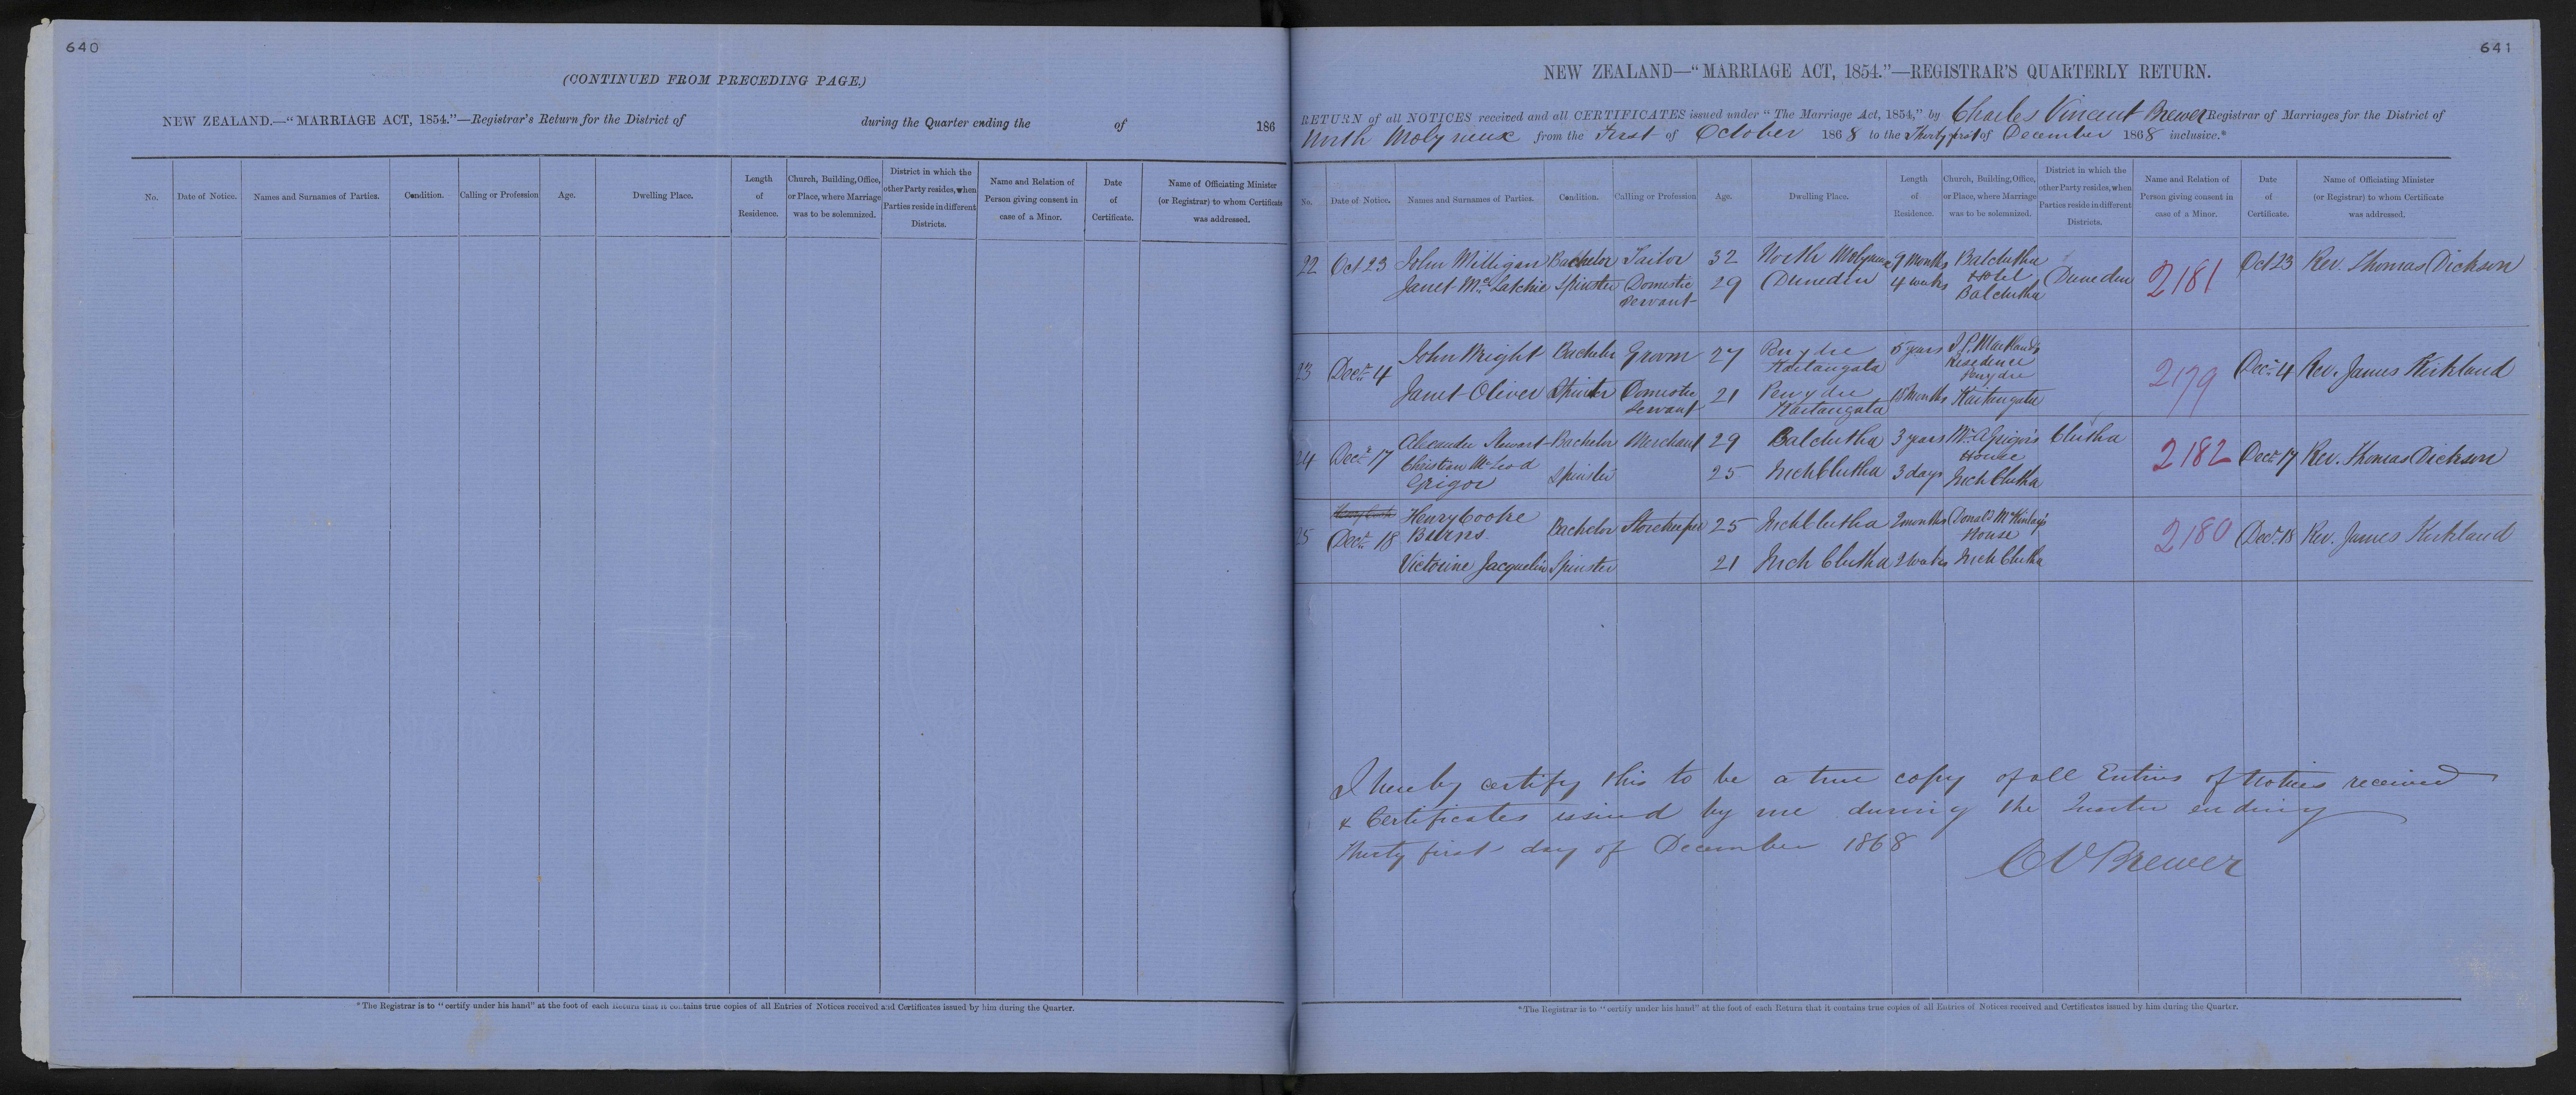 640
(CONTINUED FROM PRECEDING PAGE.)
NEW ZEALAND.—"MARRIAGE ACT, 1854."—Registrar's Return for the District of during the Quarter ending the of 186
No.
Date of Notice.
Names and Surnames of Parties.
Condition.
Calling or Profession
Age.
Dwelling Place.
Length
of
Residence.
Church, Building, Office,
or Place, where Marriage
was to be solemnized.
District in which the
other Party resides, when
Parties reside in different
Districts.
Name and Relation of
Person giving consent in
case of a Minor.
Date
of
Certificate.
Name of Officiating Minister
(or Registrar) to whom Certificate
was addressed.
*The Registrar is to "certify under his hand" at the foot of each Return that it contains true copies of all Entries of Notices received and Certificates issued by him during the Quarter.
641
NEW ZEALAND—"MARRIAGE ACT, 1854."—REGISTRAR'S QUARTERLY RETURN.
RETURN of all NOTICES received and all CERTIFICATES issued under "The Marriage Act, 1854," by Charles Vincent Brewer Registrar of Marriages for the District of
North Molyneux from the First of October 1868 to the Thirty first of December 1868 inclusive.*
No.
Date of Notice.
Names and Surnames of Parties.
Condition.
Calling or Profession
Age.
Dwelling Place.
Length
of
Residence.
Church, Building, Office,
or Place, where Marriage
was to be solemnized.
District in which the
other Party resides, when
Parties reside in different
Districts.
Name and Relation of
Person giving consent in
case of a Minor.
Date
of
Certificate.
Name of Officiating Minister
(or Registrar) to whom Certificate
was addressed.
22 Oct 23 John Milligan Bachelor Tailor 32 North Molyneux 9 Months Balclutha Oct 23 Rev. Thomas Dickson
Hotel
Janet McLatchie Spinster Domestic 29 Dunedin 4 weeks Balclutha Dunedin 2181
Servant
23 Decr 4 John Wright Bachelor Groom 27 Penydre 5 years Markland's Decr 4 Rev. James Kirkland
Kaitangata Residence
Penydre
Janet Oliver Spinster Domestic 21 Penydre 18 Months Kaitangata 2179
Servant Kaitangata
24 Decr 17 Alexander Stewart Bachelor Merchant 29 Balclutha 3 years Mr A Grigor's Clutha 2182 Decr 17 Rev. Thomas Dickson
Christian McLeod House
Grigor Spinster 25 Inch Clutha 3 days Inch Clutha
25 Decr 18 Henry Cooke
Burns Bachelor Storekeeper 25 Inch Clutha 2 months Donald McKinlay's 2180 Decr 18 Rev. James Kirkland
House
Victorine Jacquelin Spinster 21 Inch Clutha 2 weeks Inch Clutha
I hereby certify this to be a true copy of all Entries of Notices received
& Certificates issued by me during the Quarter ending
Thirty first day of December 1868
C V Brewer
*The Registrar is to "certify under his hand" at the foot of each Return that it contains true copies of all Entries of Notices received and Certificates issued by him during the Quarter.